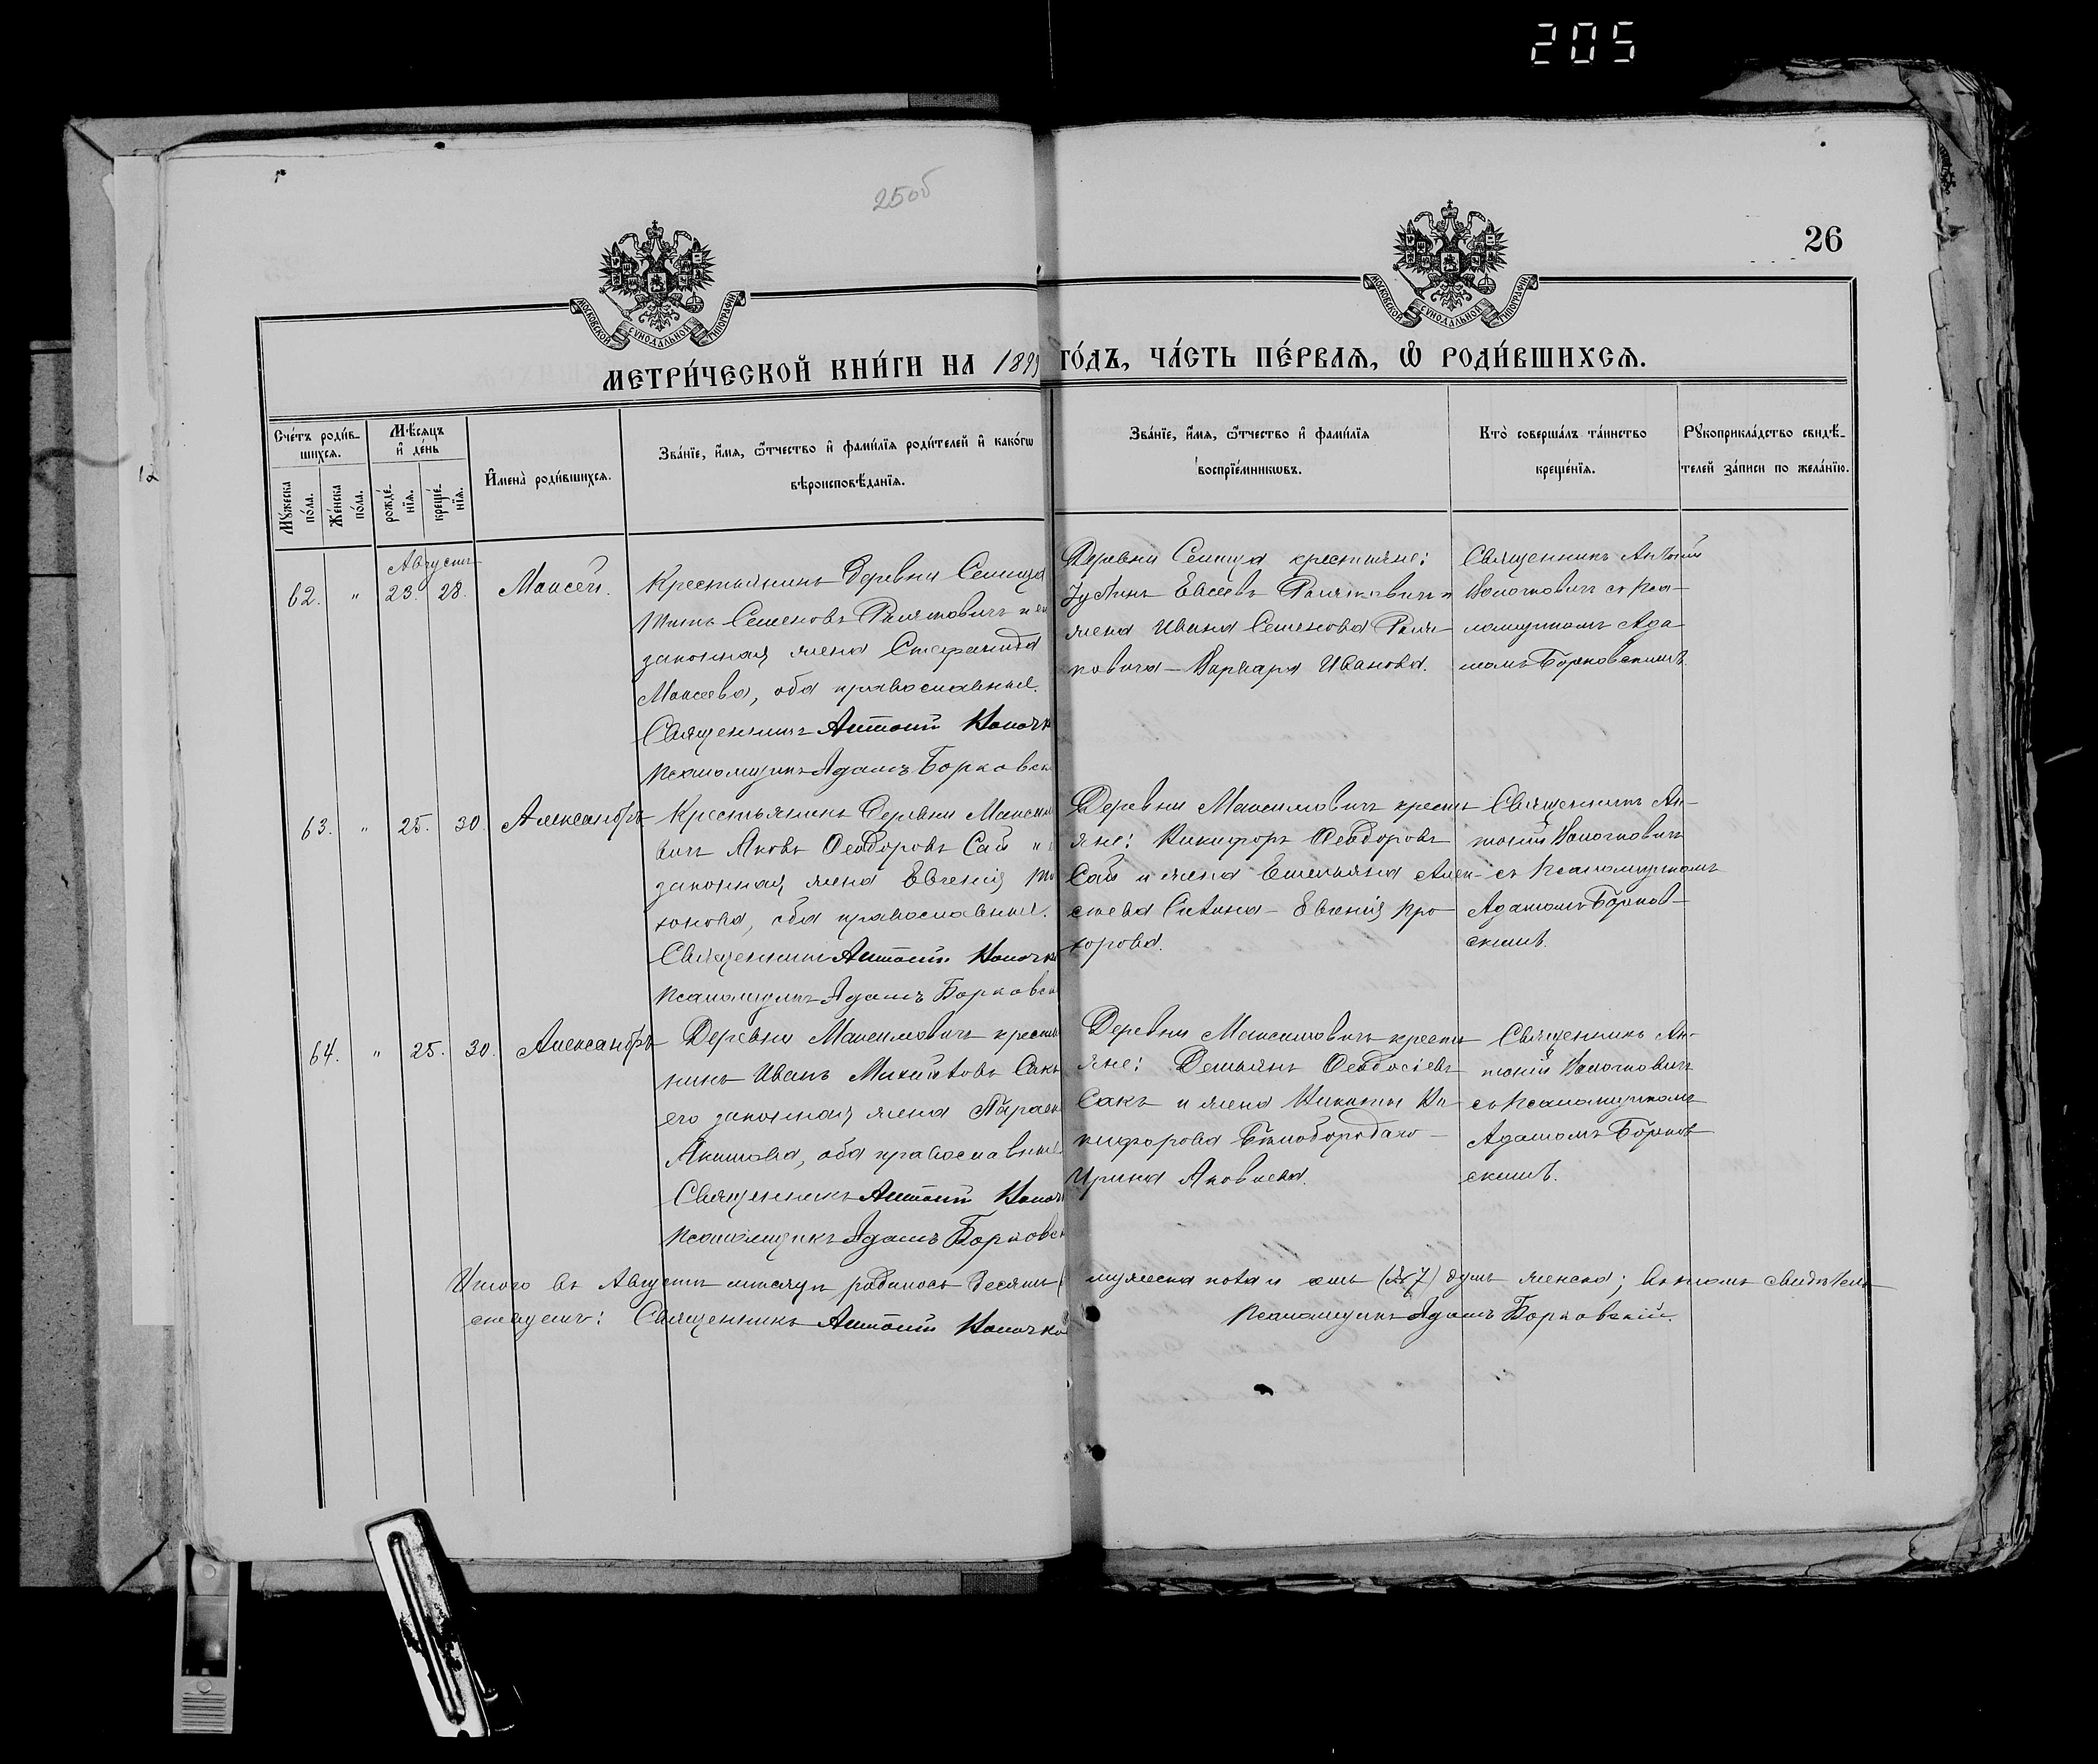 205
250б
26
МОСКОВСКОЙ СѴНОДАЛЬНОЙ ТИПОГРАФІИ
МОСКОВСКОЙ СѴНОДАЛЬНОЙ ТИПОГРАФІИ
МЕТРИ́ЧЕСКОЙ КНИ́ГИ НА 1899 ГО́ДЪ, ЧА́СТЬ ПЕ́РВАѦ, Ѽ РОДИ́ВШИХСѦ.
Сче́тъ роди́в-
шихсѧ.
Мꙋ́жеска по́ла.
Же́нска по́ла.
Мѣ́сѧцъ
и҆ де́нь
рожде́-
нїѧ.
креще́-
нїѧ.
И҆мена̀ роди́вшихсѧ.
Зва́нїе, и҆́мѧ, ѻ҆́тчество и҆ фами́лїѧ роди́телей и҆ како́гѡ
вѣроисповѣ́данїѧ.
Зва́нїе, и҆́мѧ, ѻ҆́тчество и҆ фами́лїѧ
воспрїе́мникѡвъ.
Кто̀ соверша́лъ та́инство
креще́нїѧ.
Рꙋкоприкла́дство свидѣ́-
телей за́писи по жела́нїю.
Августъ
62. " 23. 28. Моисей.
Крестьянинъ деревни Семища
Титъ Семеновъ и его
законная жена Стефанида
Моисеева, оба православные.
Священникъ Антоній
Псаломщикъ Адамъ Борковск
Деревни Семища крестьяне:
Евсеевъ и
жена Ивана Семенова
ковича – Варвара Иванова.
Священникъ Антоній
съ Пса-
ломщикомъ Ада-
момъ Борковскимъ
63. " 25. 30. Александръ
Крестьянинъ деревни Максимо
вичъ Яковъ Ѳеодоровъ Сай "
законная жена Евгенія
оба православные.
Священникъ Антоній
Псаломщикъ Адамъ Борковск
Деревни Максимовичъ кресть
яне: Никифоръ Ѳеодоровъ
Сай и жена Емельяна Алек-
сѣева – Евгенія Про-
хорова.
Священникъ Ан-
тоній
съ Псаломщикомъ
Адамомъ Борков-
скимъ.
64. " 25. 30. Александръ
Деревни Максимовичъ крестья
нинъ Иванъ Михайловъ Сакъ
его законная жена Параск
Акимова, оба православные
Священникъ Антоній
Псаломщикъ Адамъ Борковск
Деревни Максимовичъ кресть
яне: Демьянъ Ѳеодосіевъ
Сакъ и жена Никиты Ни-
кифорова
Ирина Яковлева.
Священникъ Ан-
тоній
съ Псаломщикомъ
Адамомъ Борков
скимъ.
Итого въ Августѣ мѣсяцѣ родилось десять (
мужеска пола и семь (7) душъ женска; въ томъ свидѣтель
ствуемъ: Священникъ Антоній
Псаломщикъ Адамъ Борковскій.